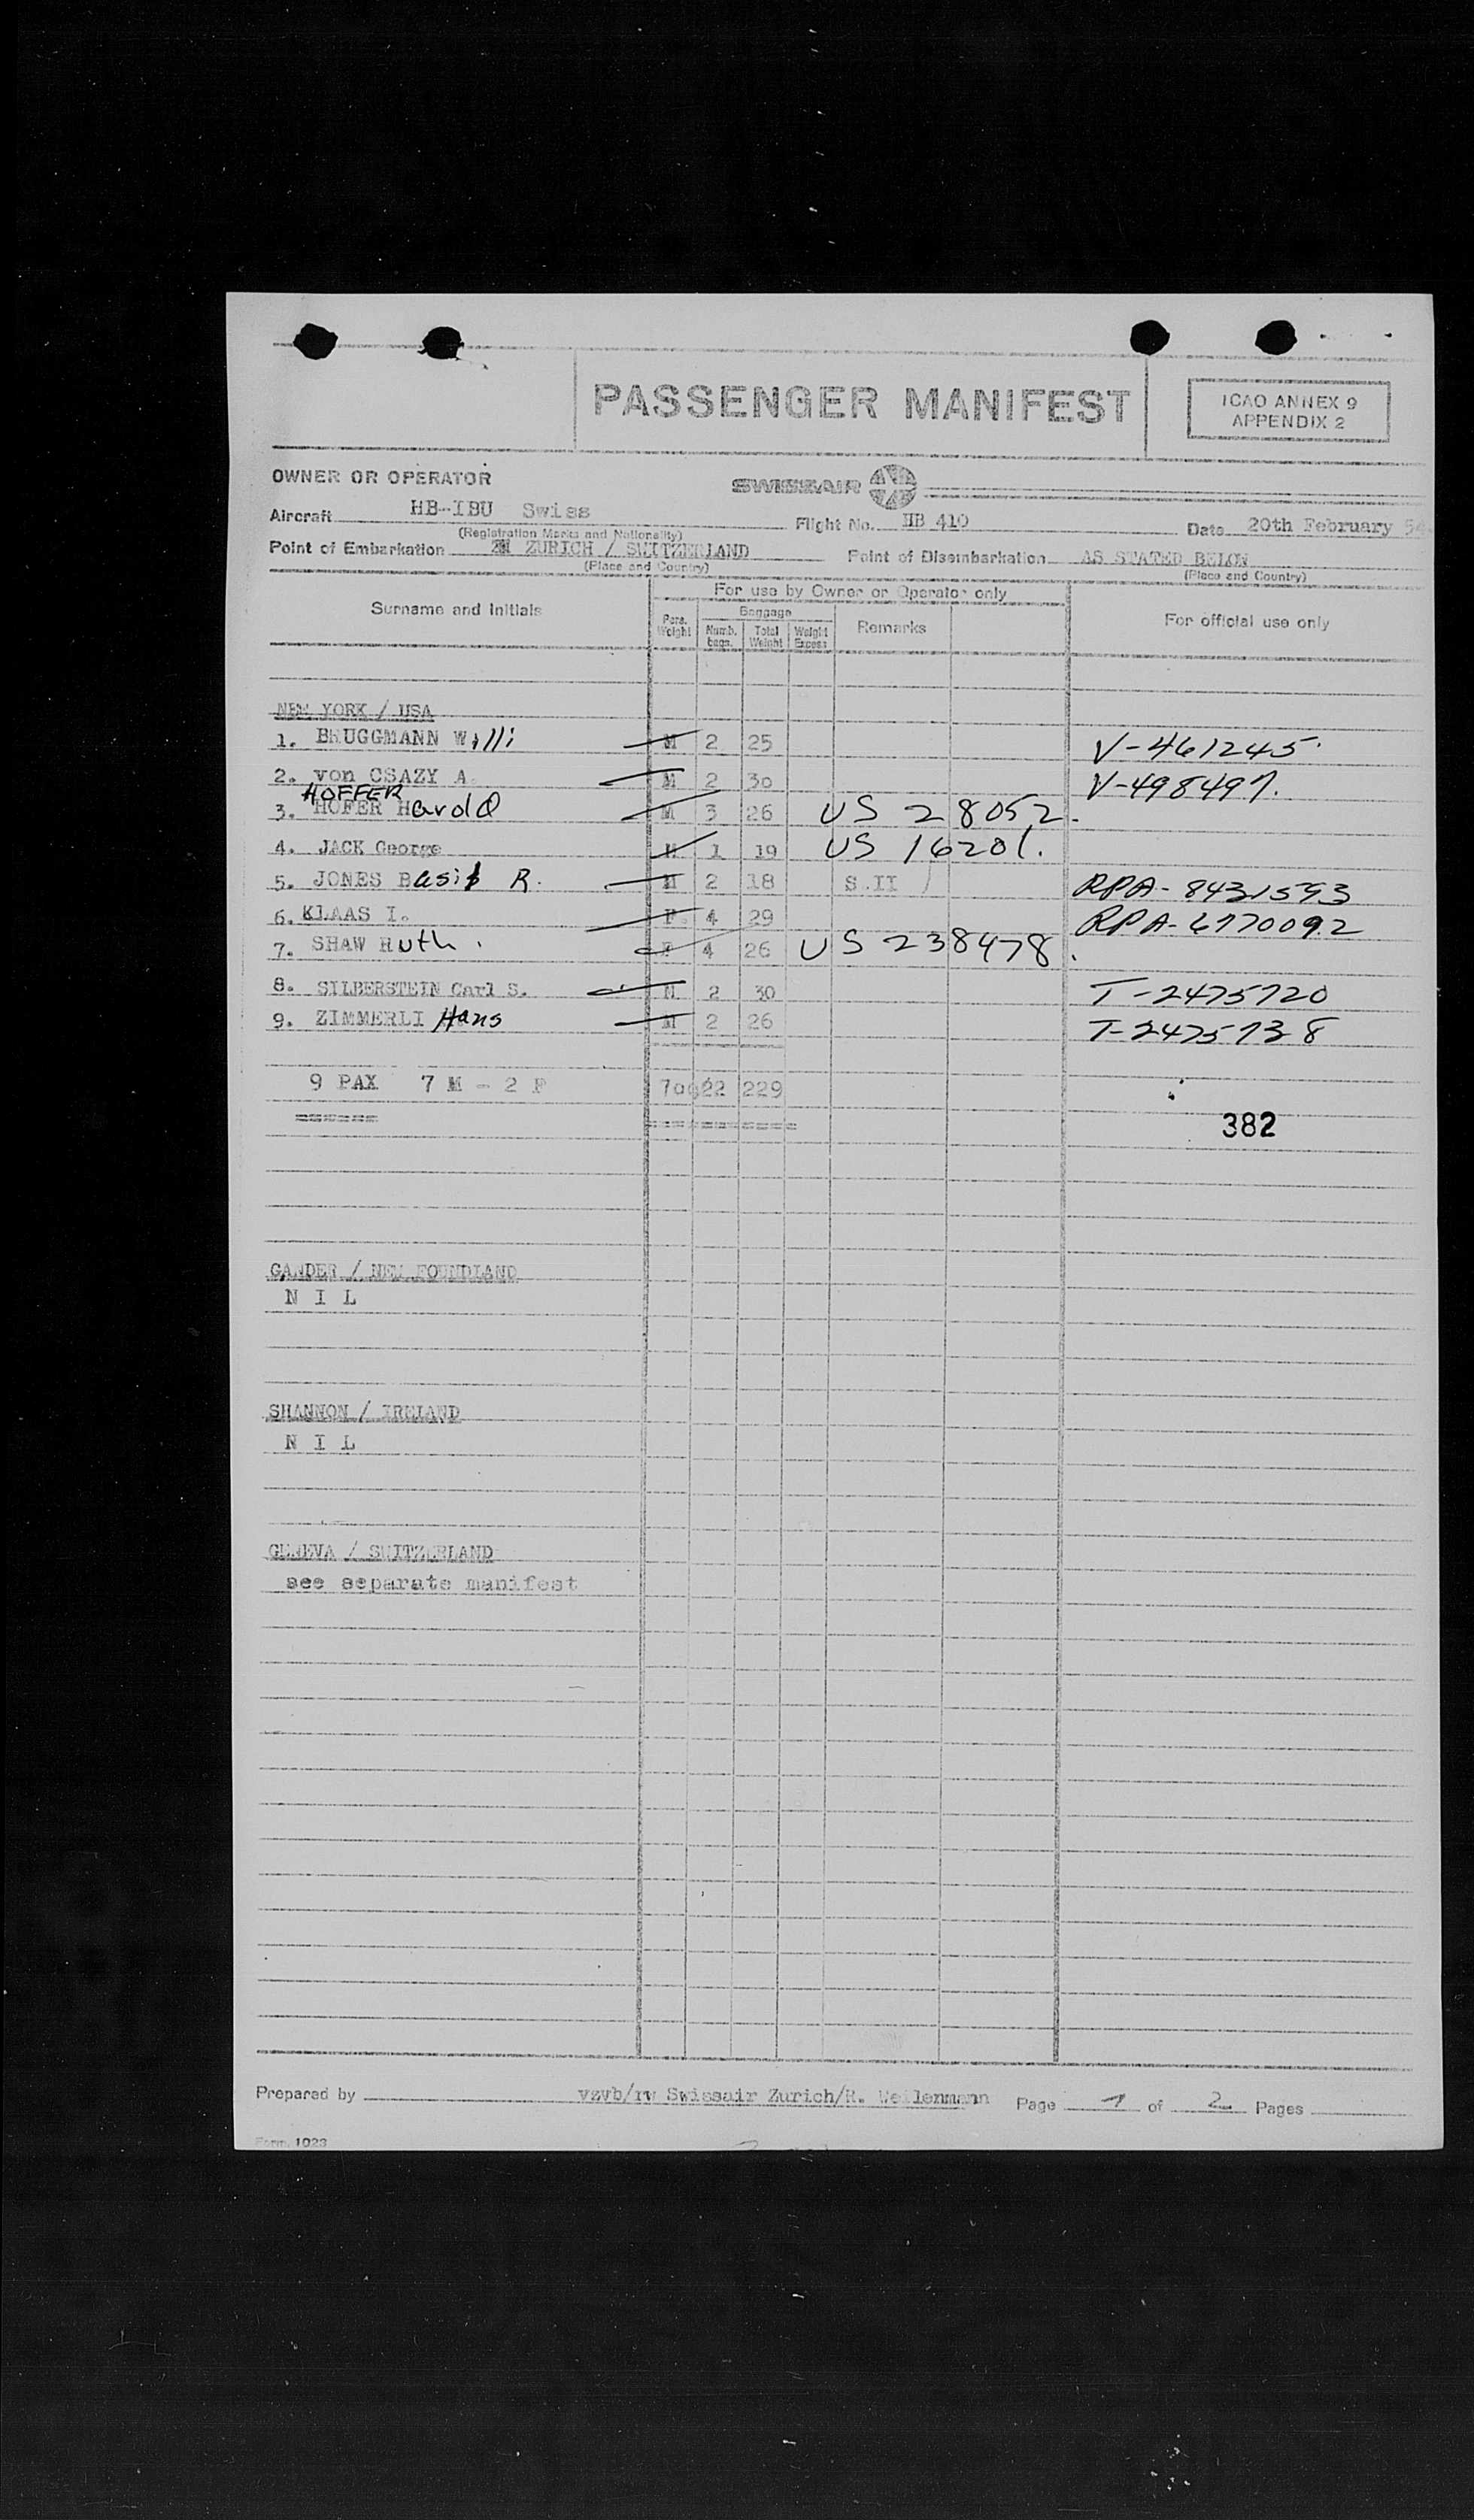 PASSENGER MANIFEST
ICAO ANNEX 9
APPENDIX 2
OWNER OR OPERATOR
SWISSAIR
Aircraft HB-IBU Swiss Flight No. HB 410 Date 20th February 54
(Registration Marks and Nationality)
Point of Embarkation ZURICH / SWITZERLAND Point of Disembarkation AS STATED BELOW
(Place and Country) (Place and Country)
For use by Owner or Operator only
Surname and Initials Pers. Weight Baggage Numb. bags. Total Weight Weight Excess Remarks For official use only
NEW YORK / USA
1. BRUGGMANN Willi M 2 25 V-461245.
2. von CSAZY A. M 2 30 V-498497.
HOFFER
3. HOFER Harold M 3 26 US 28052.
4. JACK George M 1 19 US 16201.
5. JONES Basil R. M 2 18 S.II RPA-8431593
6. KLAAS I. F 4 29 RPA-6770092
7. SHAW Ruth. F 4 26 US 238478.
8. SILBERSTEIN Carl S. M 2 30 T-2475720
9. ZIMMERLI Hans M 2 26 T-2475738
9 PAX 7 M - 2 F 22 229
382
GANDER / NEW FOUNDLAND
N I L
SHANNON / IRELAND
N I L
GENEVA / SWITZERLAND
see separate manifest
Prepared by vzvb/rw Swissair Zurich/R. Weilenmann Page 1 of 2 Pages
Form. 1023